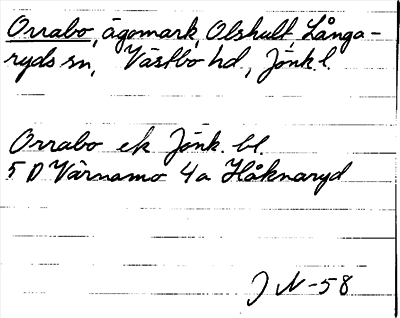 Orrabo, ägomark, Olshult, Långa-
ryds sn, Västbo hd, Jönk. l.
Orrabo ek Jönk. bl.
5 D Värnamo 4a Håknaryd
J N-58